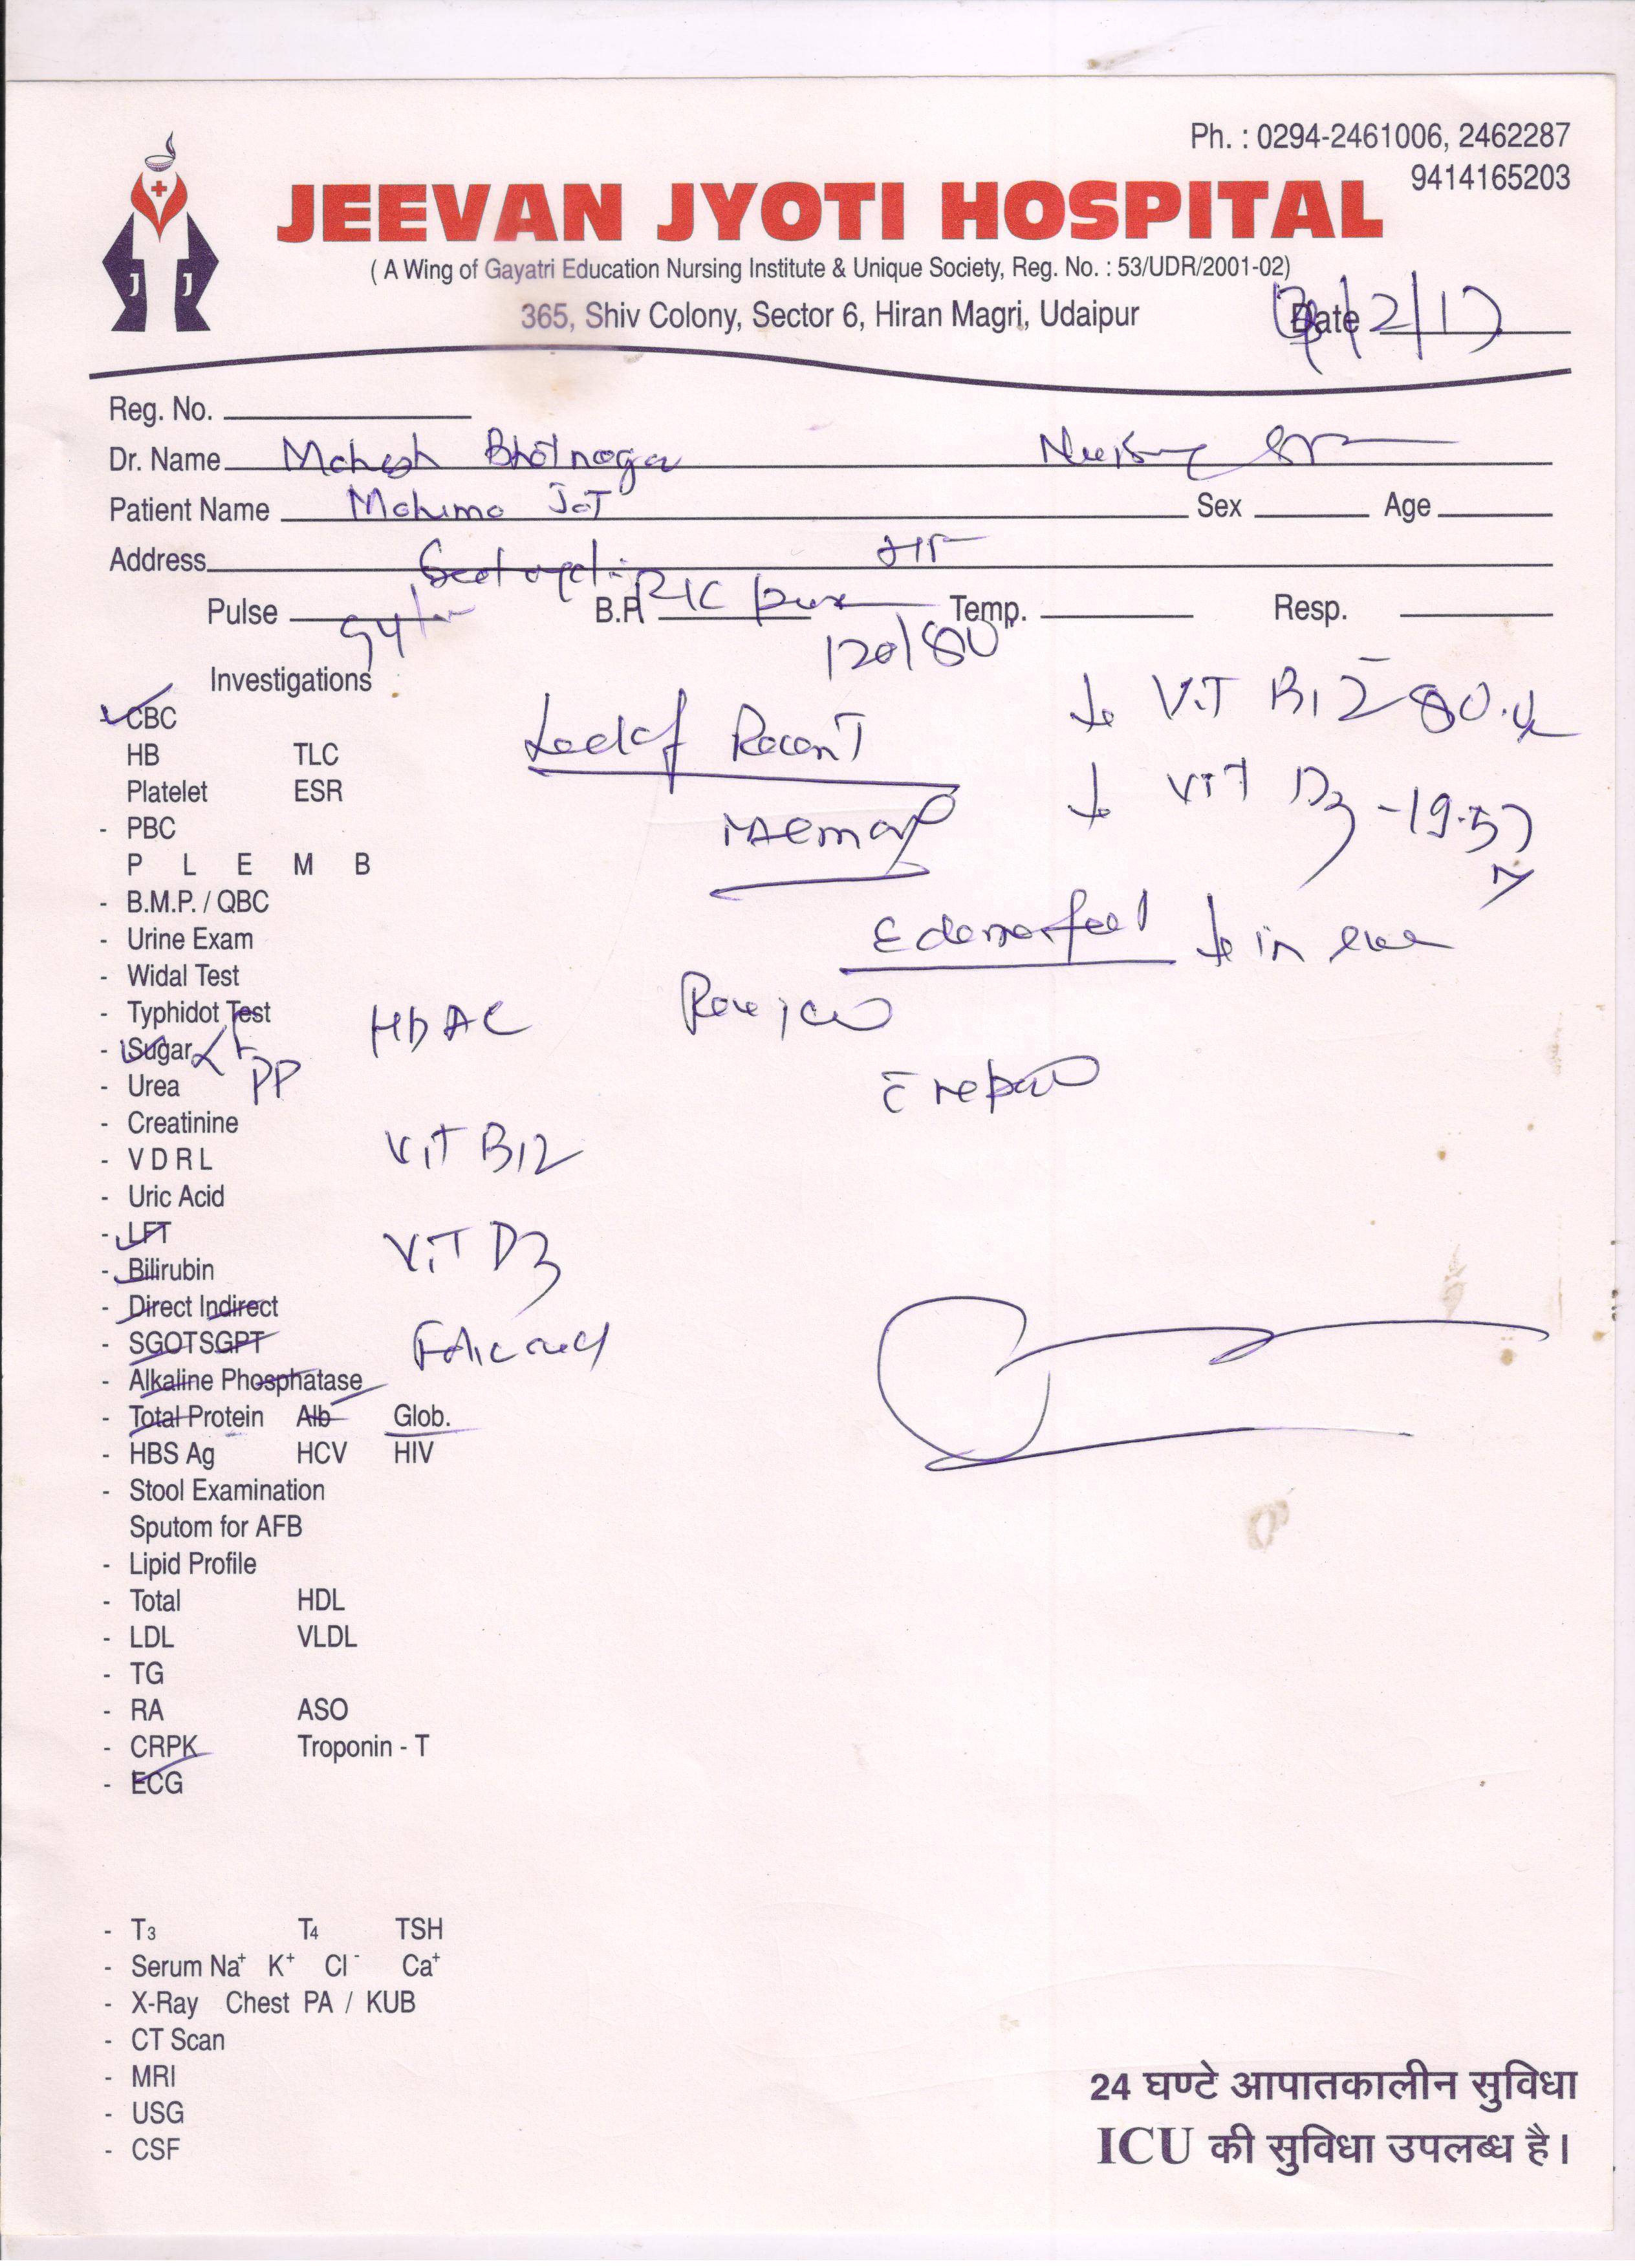 Ph. : 0294-2461006, 2462287
9414165203
JEEVAN JYOTI HOSPITAL
( A Wing of Gayatri Education Nursing Institute & Unique Society, Reg. No. : 53/UDR/2001-02)
365, Shiv Colony, Sector 6, Hiran Magri, Udaipur
Date /2/17
J J
Reg. No.
Dr. Name Mahesh Bhatnagar
Patient Name Mahima Sex Age
Address
Pulse 94/ B.P. Temp. Resp.
120/80
Investigations
CBC
HB TLC
Platelet ESR
- PBC
P L E M B
- B.M.P. / QBC
- Urine Exam
- Widal Test
- Typhidot Test
- Sugar F
PP
- Urea
- Creatinine
- V D R L
- Uric Acid
- LFT
- Bilirubin
- Direct Indirect
- SGOTSGPT
- Alkaline Phosphatase
- Total Protein Alb Glob.
- HBS Ag HCV HIV
- Stool Examination
Sputom for AFB
- Lipid Profile
- Total HDL
- LDL VLDL
- TG
- RA ASO
- CRPK Troponin - T
- ECG
- T3 T4 TSH
- Serum Na+ K+ Cl- Ca+
- X-Ray Chest PA / KUB
- CT Scan
- MRI
- USG
- CSF
HbAC
Vit B12
Vit D3
Folic acid
Lack of Recent
Memory
↓ Vit B12 80.4
↓ Vit D3 - 19.57
Edema feet ↓ in
Review
c̄ report
24 घण्टे आपातकालीन सुविधा
ICU की सुविधा उपलब्ध है।